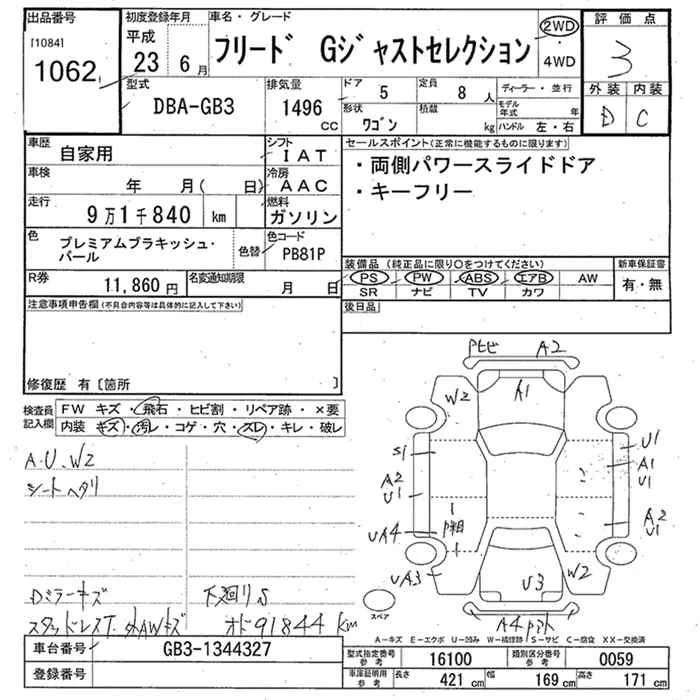 出品番号
[1084]
1062
初度登録年月
平成
23 6月
車名・グレード
フリード Gジャストセレクション
2WD
・
4WD
評価点
3
外装 内装
D C
型式
DBA-GB3
排気量
1496
cc
ドア
5
定員
8 人
ディーラー・並行
形状
ワゴン
積載
kg
モデル年式 年
ハンドル 左・右
車歴
自家用
シフト
IAT
車検
年 月( 日)
冷房
AAC
走行
9万1千840 km
燃料
ガソリン
色
プレミアムブラキッシュ・パール
色替
色コード
PB81P
R券
11,860 円
名変通知期限
月 日
セールスポイント(正常に機能するものに限ります)
・両側パワースライドドア
・キーフリー
装備品(純正品に限り○をつけてください)
新車保証書
PS PW ABS エアB AW
SR ナビ TV カワ
有・無
後日品
注意事項申告欄(不具合内容等は具体的に記入して下さい)
修復歴 有〔箇所 〕
検査員記入欄
FW キズ・飛石・ヒビ割・リペア跡・×要
内装 キズ・汚レ・コゲ・穴・スレ・キレ・破レ
A.U.W2
シートヘタリ
Dミラーキズ
下廻りS
スタッドレスT.
オド91844km
A2
W2
A1
S1
A2
U1
UA4
UA3
U1
A1
U1
A2
U1
W2
U3
A4
スペア
A-キズ E-エクボ U-凹み W-補修跡 S-サビ C-腐食 XX-交換済
車台番号
GB3-1344327
登録番号
型式指定番号
参考
16100
類別区分番号
参考
0059
車庫証明用
参考
長さ 421 cm 幅 169 cm 高さ 171 cm